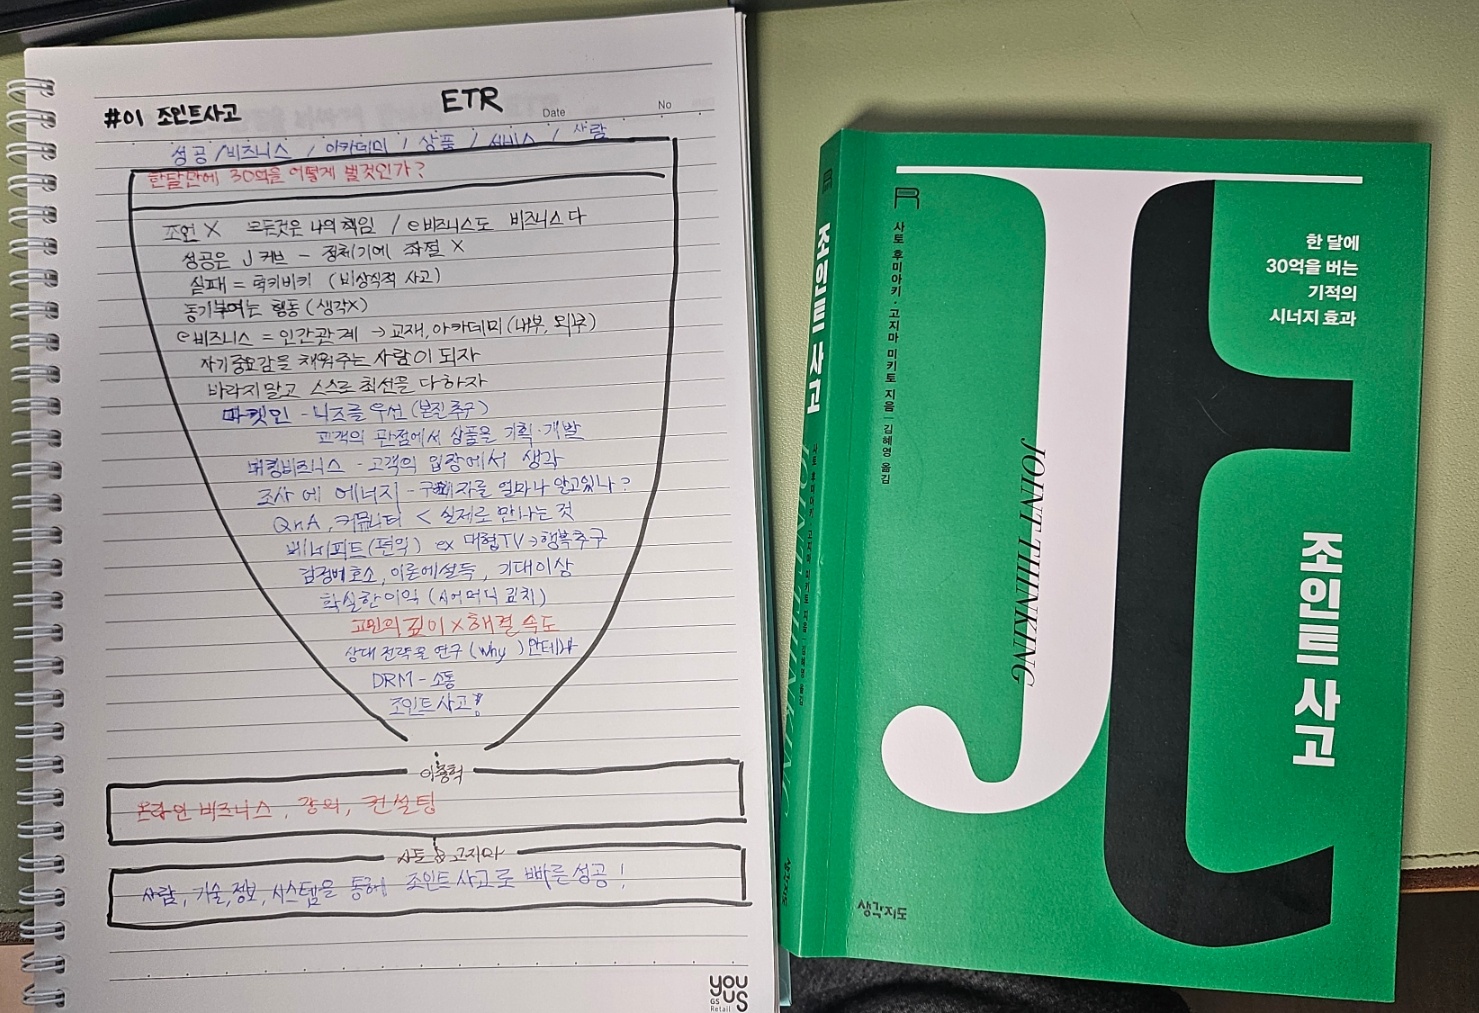 #01 조인트사고
ETR
Date
No
성공 / 비즈니스 / 아카데미 / 상품 / 서비스 / 사람
한달만에 30억을 어떻게 벌것인가?
조언 X 모든것은 나의 책임 / e비즈니스도 비즈니스다
성공은 J 커브 - 정체기에 좌절 X
실패 = 럭키비키 (비상식적 사고)
동기부여는 행동 (생각X)
e비즈니스 = 인간관계 → 교재, 아카데미 (내부, 외부)
자기중요감을 채워주는 사람이 되자
바라지말고 스스로 최선을 다하자
마켓인 - 니즈를 우선 (본질추구)
고객의 관점에서 상품을 기획·개발
비즈니스 - 고객의 입장에서 생각
조사에 에너지 - 구매자를 얼마나 알고있나?
QnA, 커뮤니티 < 실제로 만나는 것
베네피트(편익) ex 대형TV → 행복추구
감정에 호소, 이론에 설득, 기대이상
확실한 이익 (시어머니 교치)
고민의 깊이 X 해결 속도
상대 전략을 연구 (why)
DRM - 소통
조인트사고!
이종혁
온라인 비즈니스, 강의, 컨설팅
사토 & 고지마
사람, 기술, 정보, 시스템을 통해 조인트사고로 빠른성공!
YOU US
GS Retail
조인트 사고
사토 후미아키·고지마 미키토 지음 김혜영 옮김
JOINT THINKING
생각지도
R
사토 후미아키·고지마 미키토 지음 | 김혜영 옮김
한 달에
30억을 버는
기적의
시너지 효과
JOINT THINKING
조인트 사고
생각지도